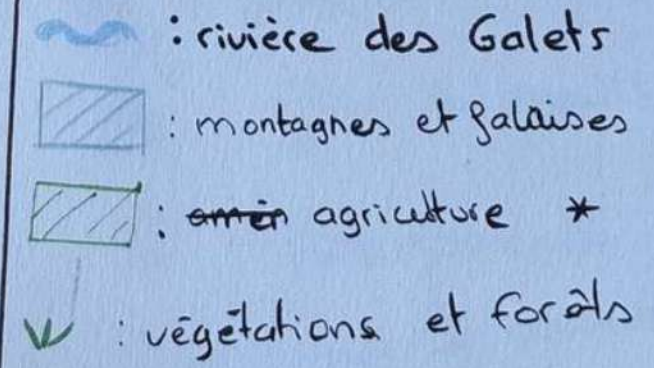 : rivière des Galets
: montagnes et falaises
: amén agriculture *
: végétations et forêts